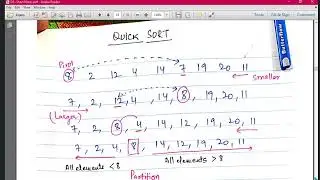 QUICK SORT
Pivot
8 2 12 4 14 7 19 20 11
Smaller
7, 2, 12, 4, 14, 8, 19, 20, 11
(Larger)
7, 2, 8, 4, 14, 12, 19, 20, 11
7, 2, 4, 8, 14, 12, 19, 20, 11
All elements < 8 All elements > 8
Partition